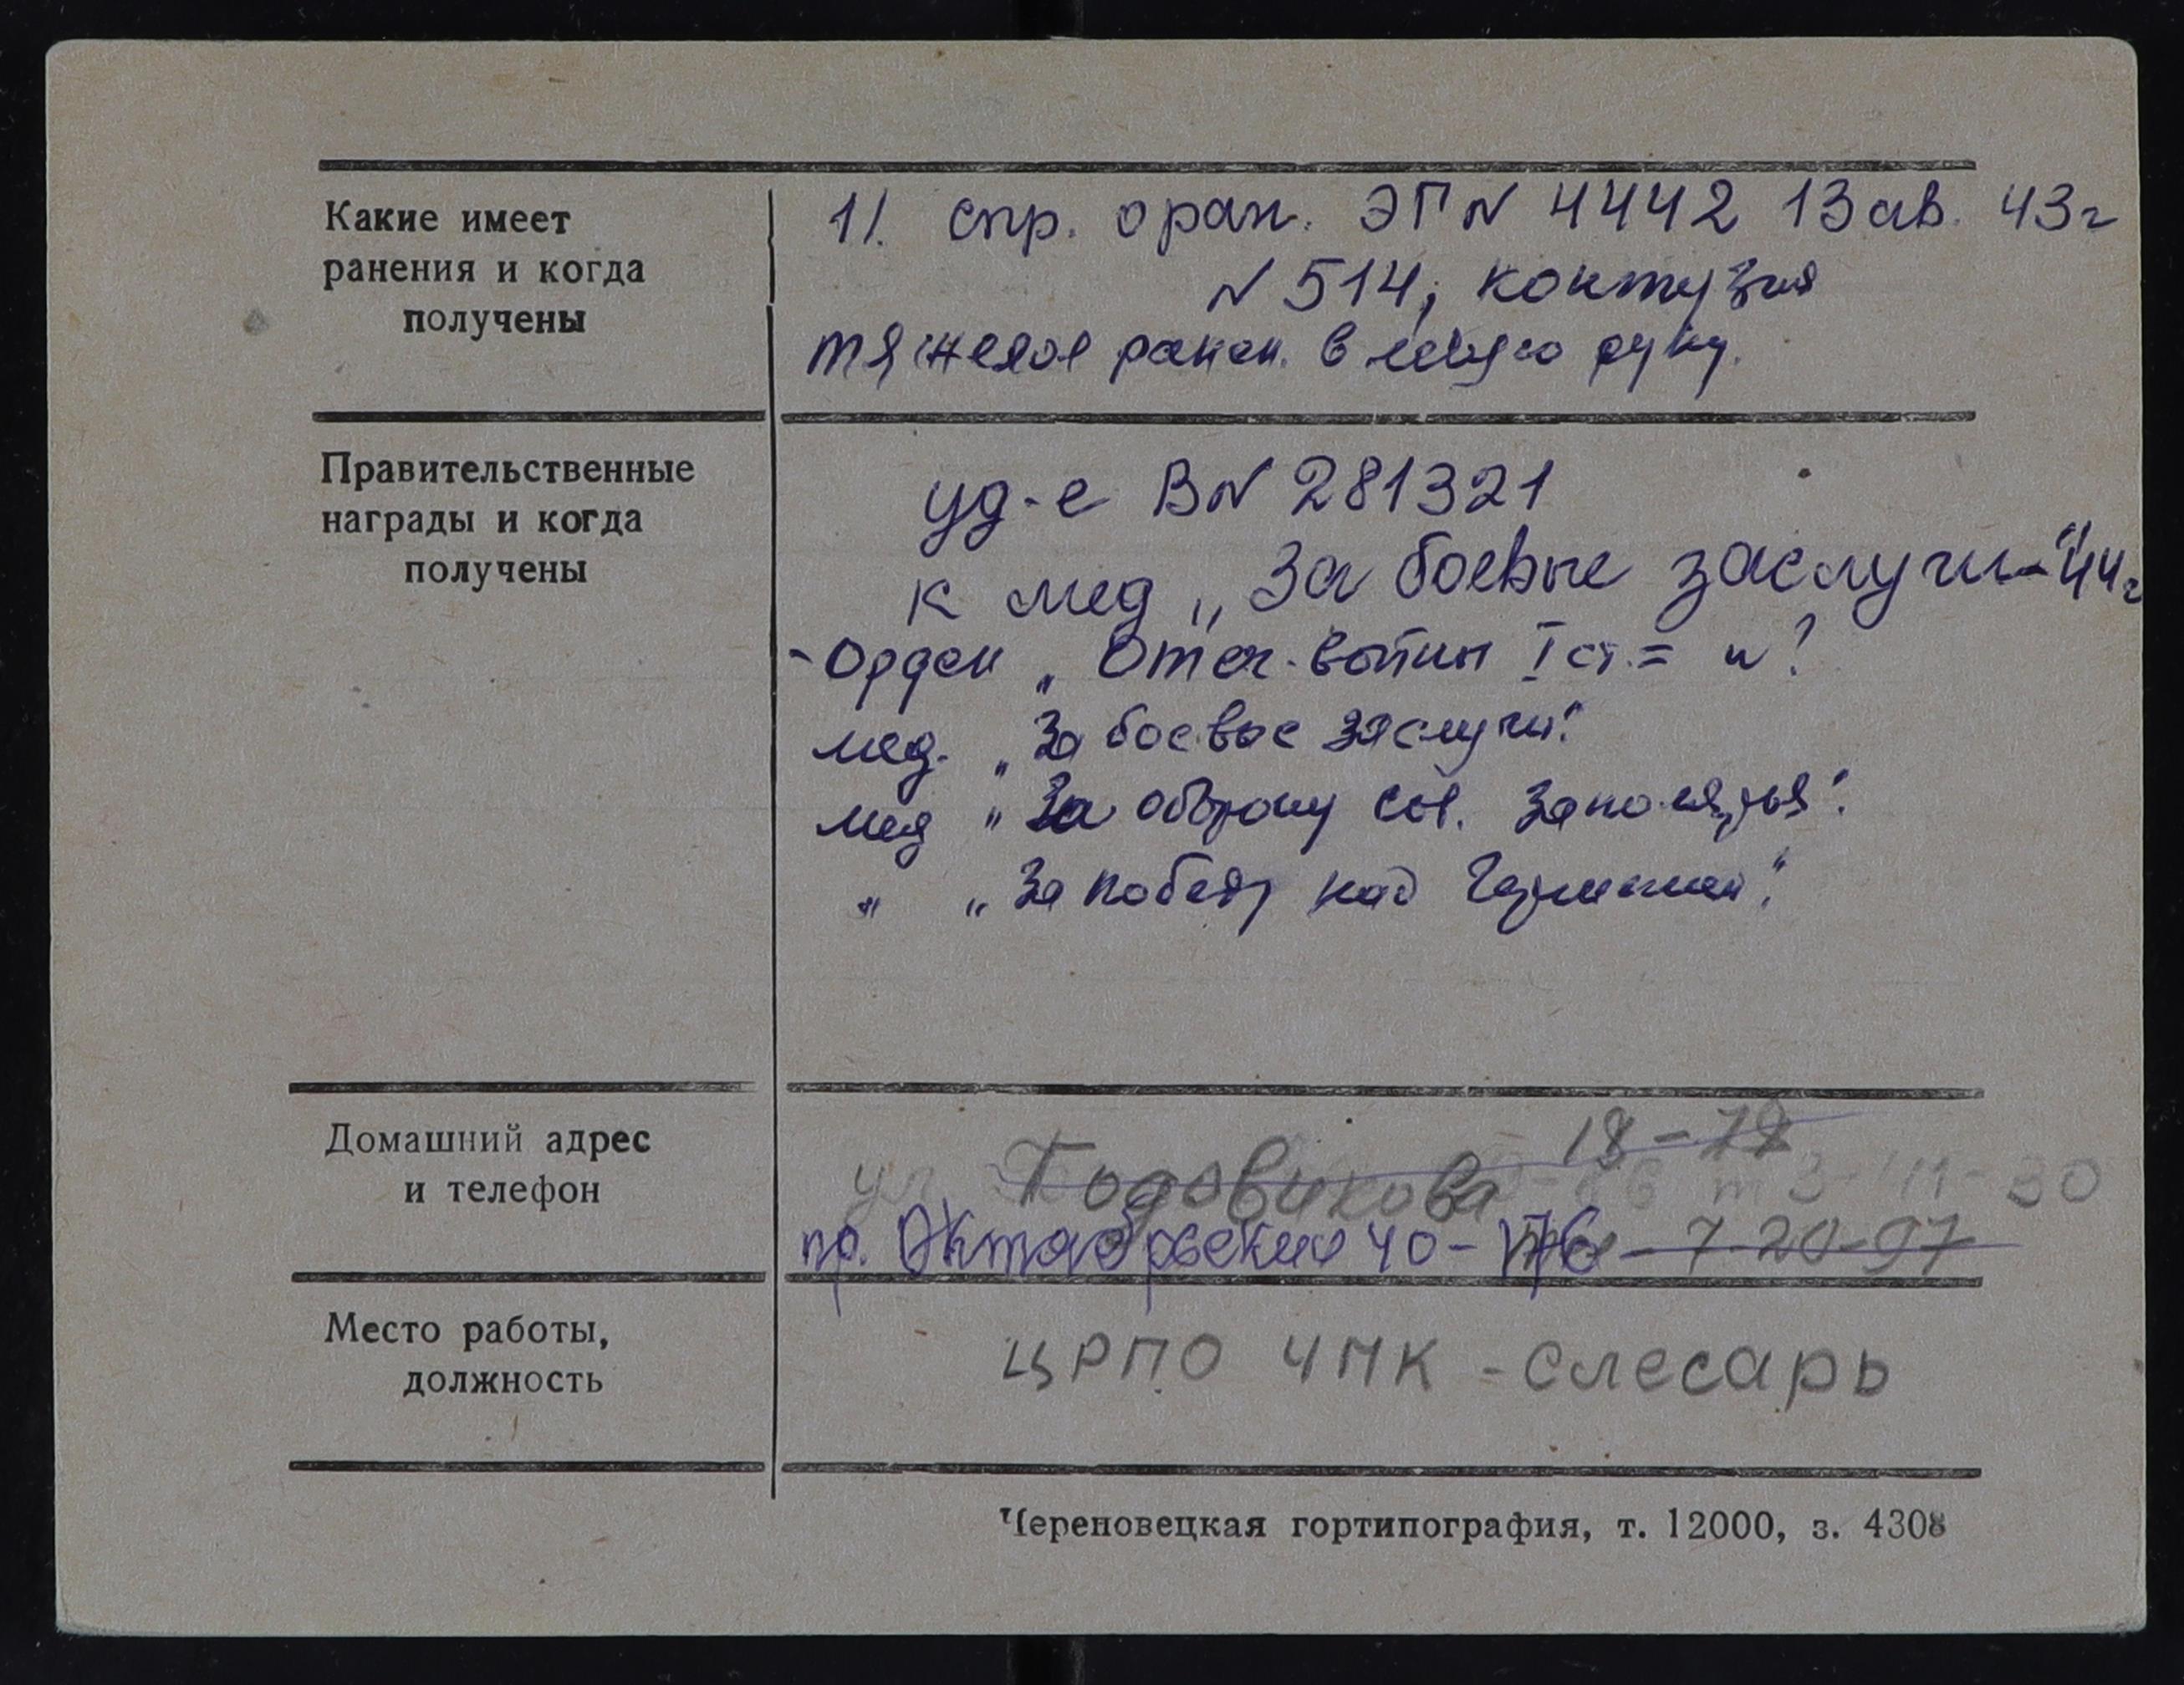 Какие имеет
ранения и когда
получены
1/. спр. о ран. ЭГ N 4442 13 ав. 43г
N 514; контузия
тяжелое ранен. в левую руку.
Правительственные
награды и когда
получены
уд-е В N 281321
к мед „За боевые заслуги-" 44г
- Орден „Отеч. войны I ст. = N?
мед. „За боевые заслуги".
мед „За оборону Сов. Заполярья".
„ „За победу над Германией".
Домашний адрес
и телефон
18-78
ул Годовикова 11-30
пр. Октябрьский 40- 7-20-97
Место работы,
должность
ЦРПО ЧМК - слесарь
Череповецкая гортипография, т. 12000, з. 4308